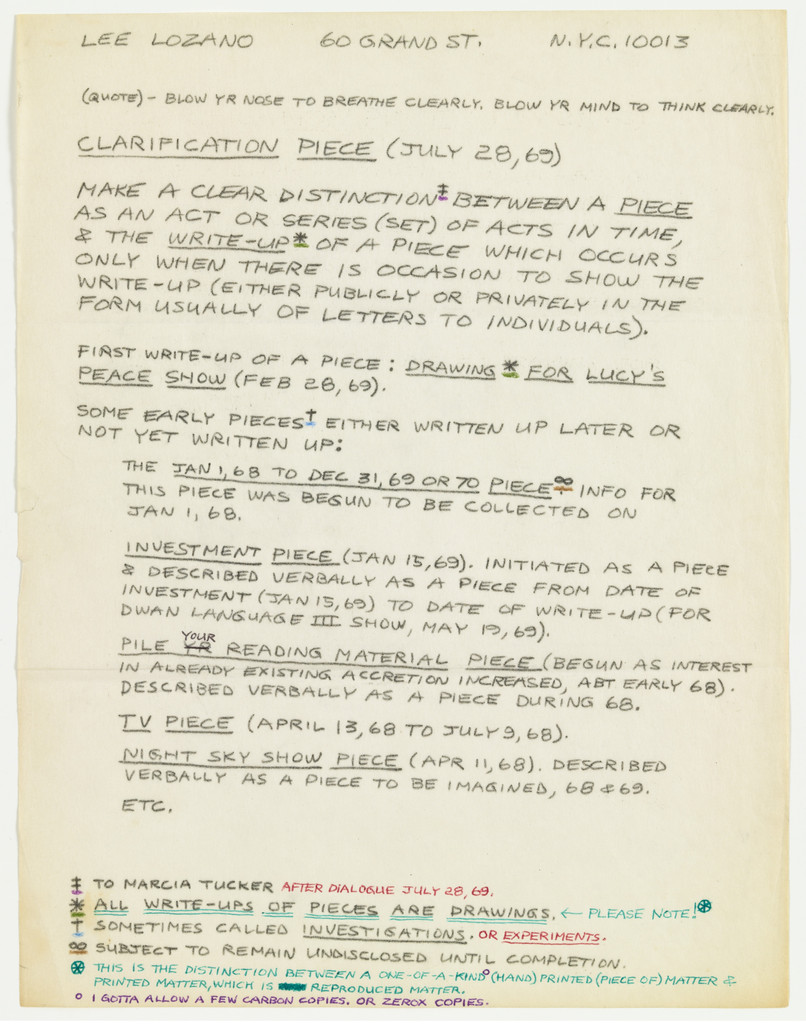 LEE LOZANO 60 GRAND ST. N.Y.C. 10013
(QUOTE) - BLOW YR NOSE TO BREATHE CLEARLY. BLOW YR MIND TO THINK CLEARLY.
CLARIFICATION PIECE (JULY 28, 69)
MAKE A CLEAR DISTINCTION‡ BETWEEN A PIECE
AS AN ACT OR SERIES (SET) OF ACTS IN TIME,
& THE WRITE-UP* OF A PIECE WHICH OCCURS
ONLY WHEN THERE IS OCCASION TO SHOW THE
WRITE-UP (EITHER PUBLICLY OR PRIVATELY IN THE
FORM USUALLY OF LETTERS TO INDIVIDUALS).
FIRST WRITE-UP OF A PIECE: DRAWING* FOR LUCY'S
PEACE SHOW (FEB 28, 69).
SOME EARLY PIECES† EITHER WRITTEN UP LATER OR
NOT YET WRITTEN UP:
THE JAN 1, 68 TO DEC 31, 69 OR 70 PIECE∞ INFO FOR
THIS PIECE WAS BEGUN TO BE COLLECTED ON
JAN 1, 68.
INVESTMENT PIECE (JAN 15, 69). INITIATED AS A PIECE
& DESCRIBED VERBALLY AS A PIECE FROM DATE OF
INVESTMENT (JAN 15, 69) TO DATE OF WRITE-UP (FOR
DWAN LANGUAGE III SHOW, MAY 19, 69).
PILE YOUR YR READING MATERIAL PIECE (BEGUN AS INTEREST
IN ALREADY EXISTING ACCRETION INCREASED, ABT EARLY 68).
DESCRIBED VERBALLY AS A PIECE DURING 68.
TV PIECE (APRIL 13, 68 TO JULY 9, 68).
NIGHT SKY SHOW PIECE (APR 11, 68). DESCRIBED
VERBALLY AS A PIECE TO BE IMAGINED, 68 & 69.
ETC.
‡ TO MARCIA TUCKER AFTER DIALOGUE JULY 28, 69.
* ALL WRITE-UPS OF PIECES ARE DRAWINGS. ← PLEASE NOTE!⊛
† SOMETIMES CALLED INVESTIGATIONS. OR EXPERIMENTS.
∞ SUBJECT TO REMAIN UNDISCLOSED UNTIL COMPLETION.
⊛ THIS IS THE DISTINCTION BETWEEN A ONE-OF-A-KIND° (HAND) PRINTED (PIECE OF) MATTER &
PRINTED MATTER, WHICH IS REPRODUCED MATTER.
° I GOTTA ALLOW A FEW CARBON COPIES. OR ZEROX COPIES.